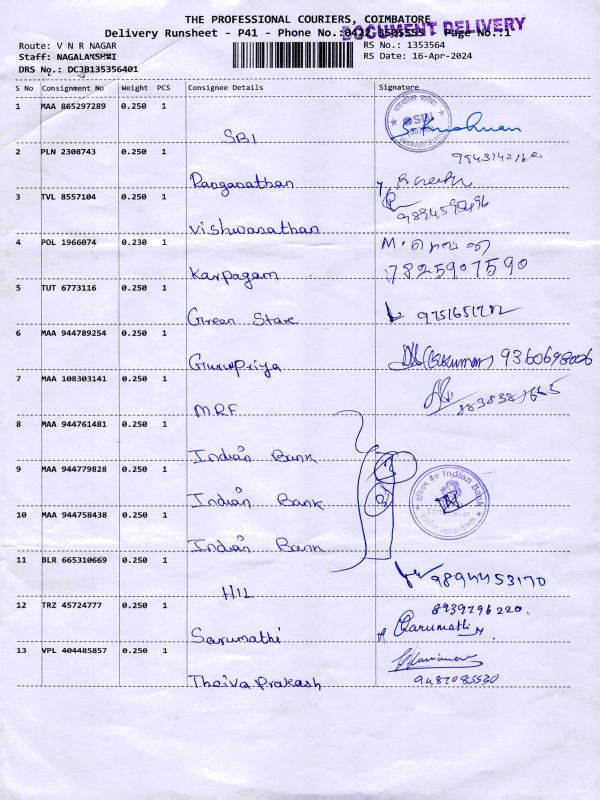 THE PROFESSIONAL COURIERS, COIMBATORE
DOCUMENT DELIVERY
Delivery Runsheet - P41 - Phone No.:0422-3505555 Page No.:1
Route: V N R NAGAR
RS No.: 1353564
Staff: NAGALAKSHMI
RS Date: 16-Apr-2024
DRS No.: DCJB135356401
S No Consignment No Weight PCS Consignee Details Signature
1 MAA 865297289 0.250 1
SBI
SBI
S. Krishnan
2 PLN 2308743 0.250 1
Ranganathan
3 TVL 8557104 0.250 1
Vishwanathan
4 POL 1966074 0.230 1
Karpagam
7825907590
5 TUT 6773116 0.250 1
Green Stare
9751651782
6 MAA 944789254 0.250 1
Gurupriya
7 MAA 108303141 0.250 1
MRF
8 MAA 944761481 0.250 1
Indian Bank
9 MAA 944779828 0.250 1
Indian Bank
Indian Bank
10 MAA 944758438 0.250 1
Indian Bank
11 BLR 665310669 0.250 1
HIL
9894453170
12 TRZ 45724777 0.250 1
Sarumathi
8939296220.
Sarumathi
13 VPL 404485857 0.250 1
Theiva Prakash
9487085530